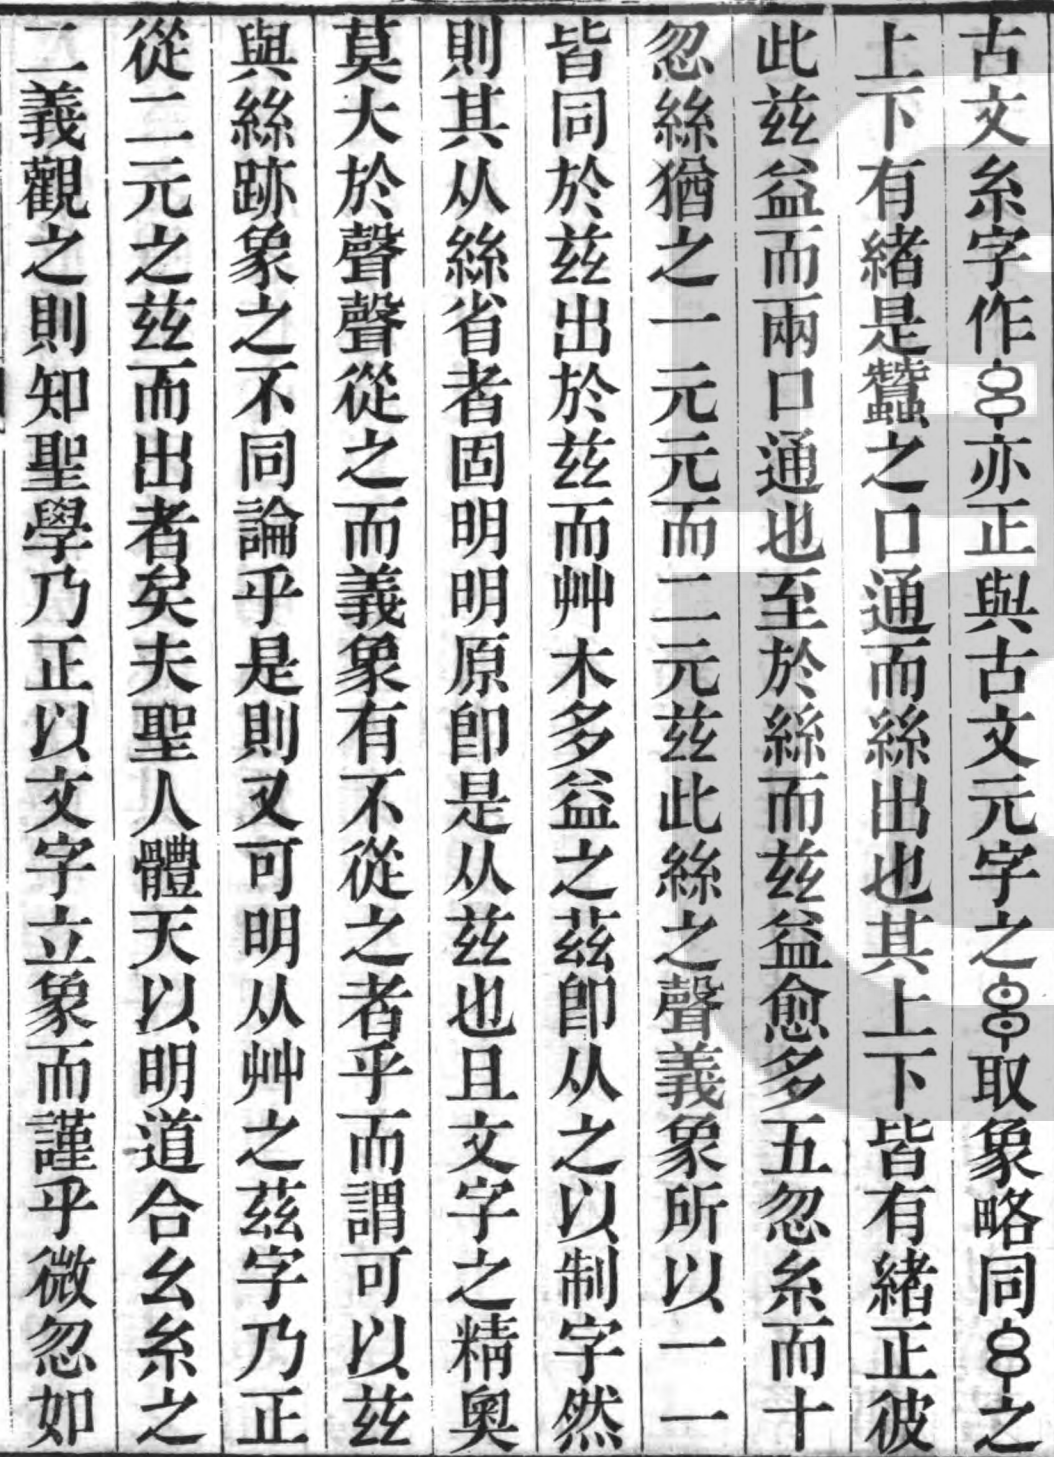 古文糸字作𢆯亦正與古文元字之𢆰取象略同𢆯之
上下有緒是蠶之口通而絲出也其上下皆有緒正彼
此茲益而兩口通也至於絲而茲益愈多五忽糸而十
忽絲猶之一元元而二元茲此絲之聲義象所以一一
皆同於茲出於茲而艸木多益之茲卽从之以制字然
則其从絲省者固明明原卽是从茲也且文字之精奧
莫大於聲聲從之而義象有不從之者乎而謂可以茲
與絲跡象之不同論乎是則又可明从艸之茲字乃正
從二元之茲而出者矣夫聖人體天以明道合幺糸之
二義觀之則知聖學乃正以文字立象而謹乎微忽如